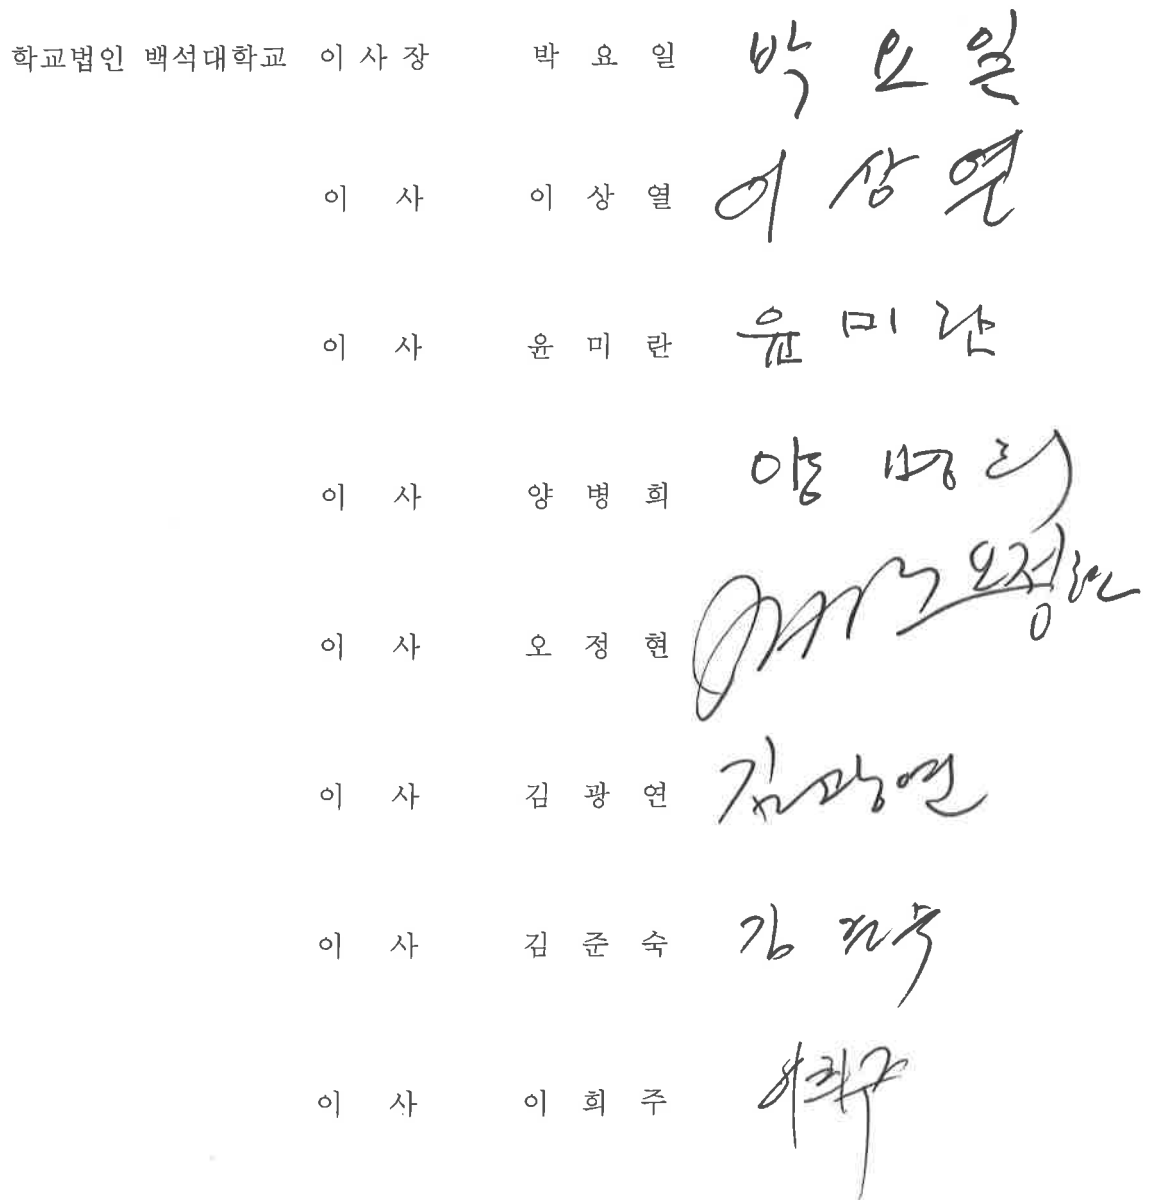 학교법인 백석대학교 이 사 장 박 요 일 박 요 일
이 사 이 상 열 이 상 열
이 사 윤 미 란 윤 미 란
이 사 양 병 희 양 병 희
이 사 오 정 현 오정현
이 사 김 광 연 김광연
이 사 김 준 숙 김 준숙
이 사 이 희 주 이희주